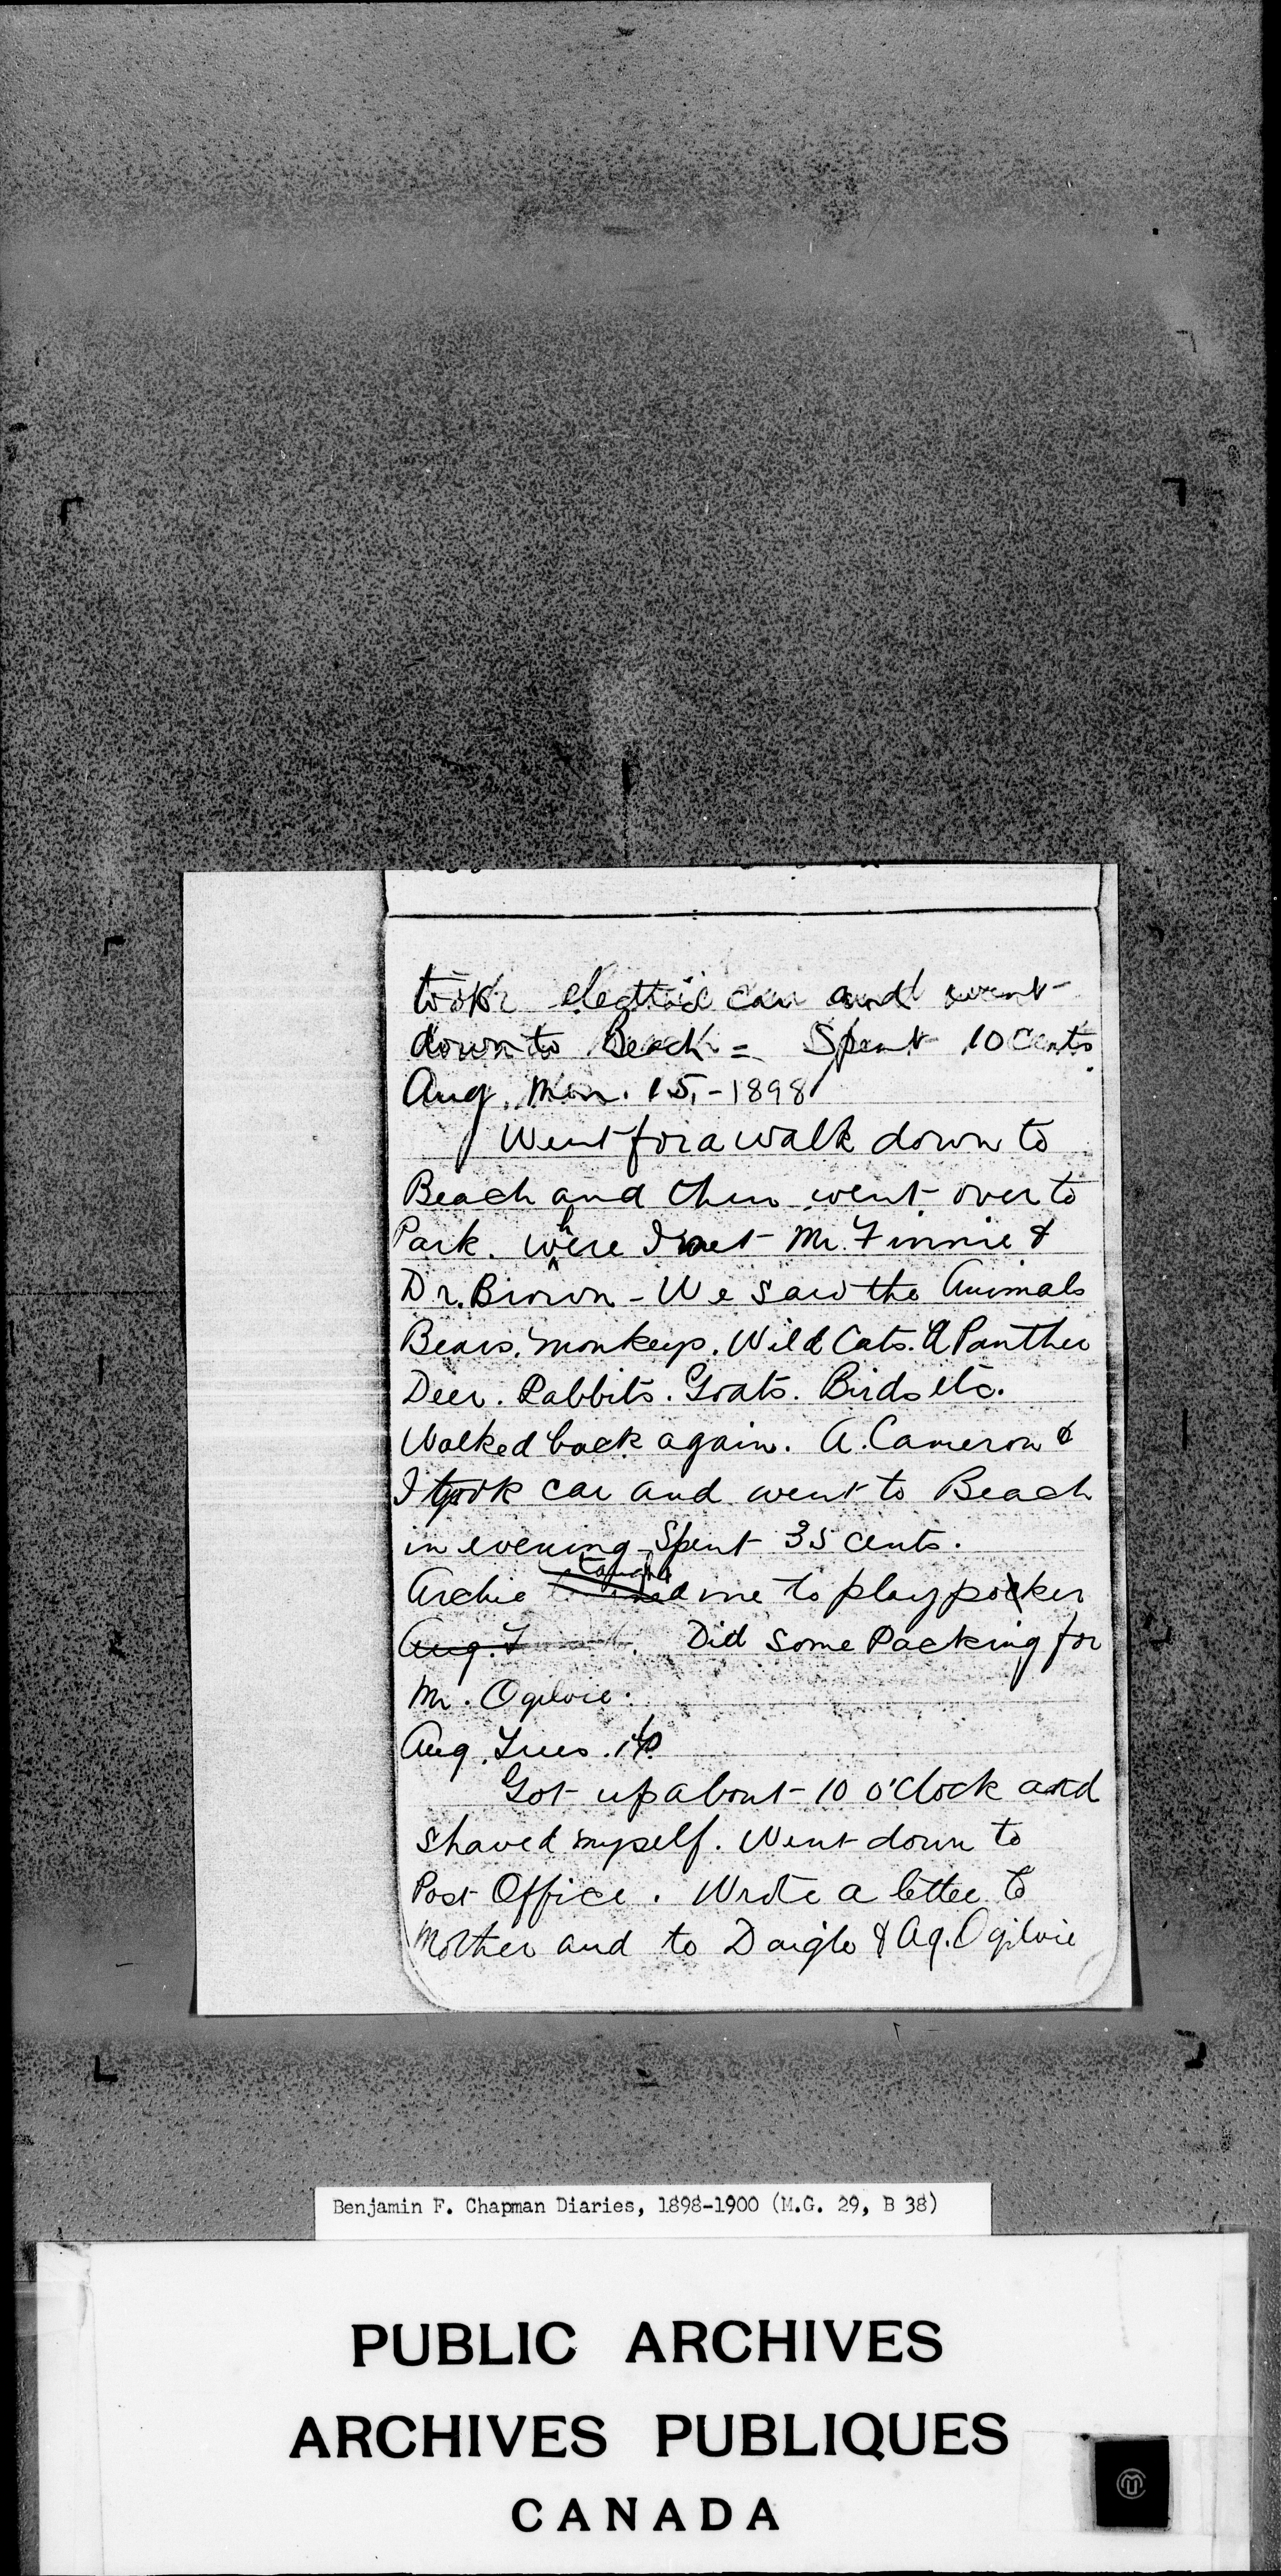 took electric car and went
down to Beach = Spent 10 Cents
Aug. Mon. 15,-1898
Went for a walk down to
Beach and then went over to
Park. where I met Mr. Finnie &
Dr. Brown - We saw the Animals
Bears. Monkeys. Wild Cats. A Panther
Deer. Rabbits. Goats. Birds etc.
Walked back again. A. Cameron &
I took car and went to Beach
in evening - Spent 35 cents.
Archie taught me to play pocker
Aug. T Did some Packing for
Mr. Ogilvie.
Aug. Tues. 16
Got up about 10 o'clock and
shaved myself. Went down to
Post Office. Wrote a letter to
Mother and to Daigle & Ag. Ogilvie
Benjamin F. Chapman Diaries, 1898-1900 (M.G. 29, B 38)
PUBLIC ARCHIVES
ARCHIVES PUBLIQUES
CANADA